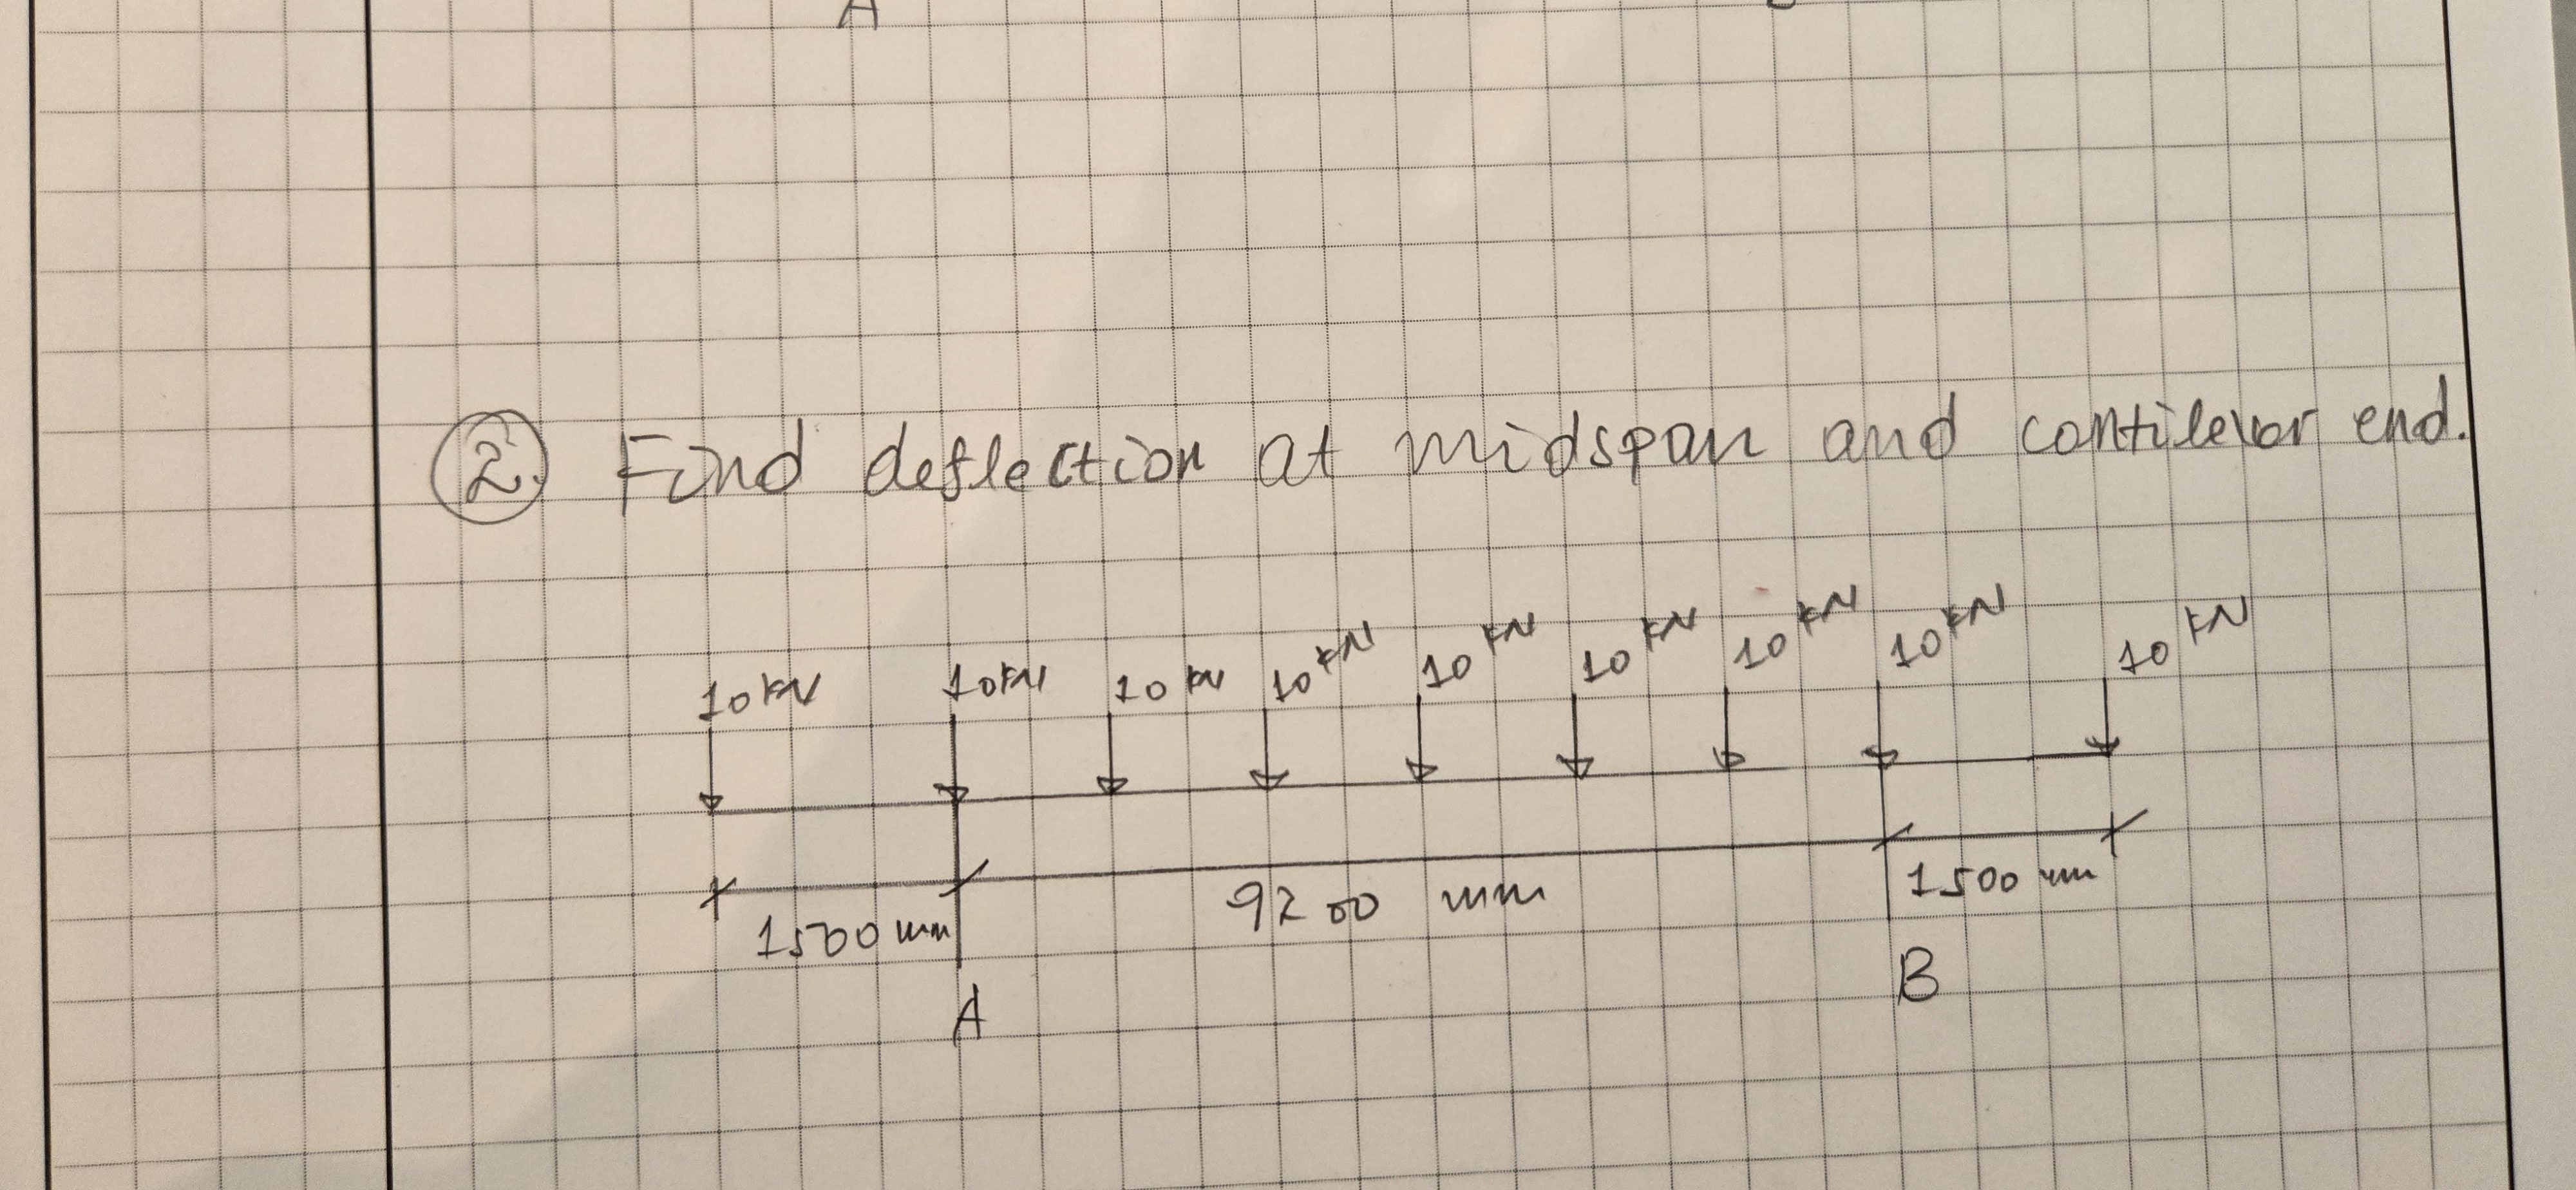 A
2. Find deflection at midspan and contilever end.
10kN 10kN 10kN 10kN 10kN 10kN 10kN 10kN 10kN
1500 mm 9200 mm 1500 mm
A B